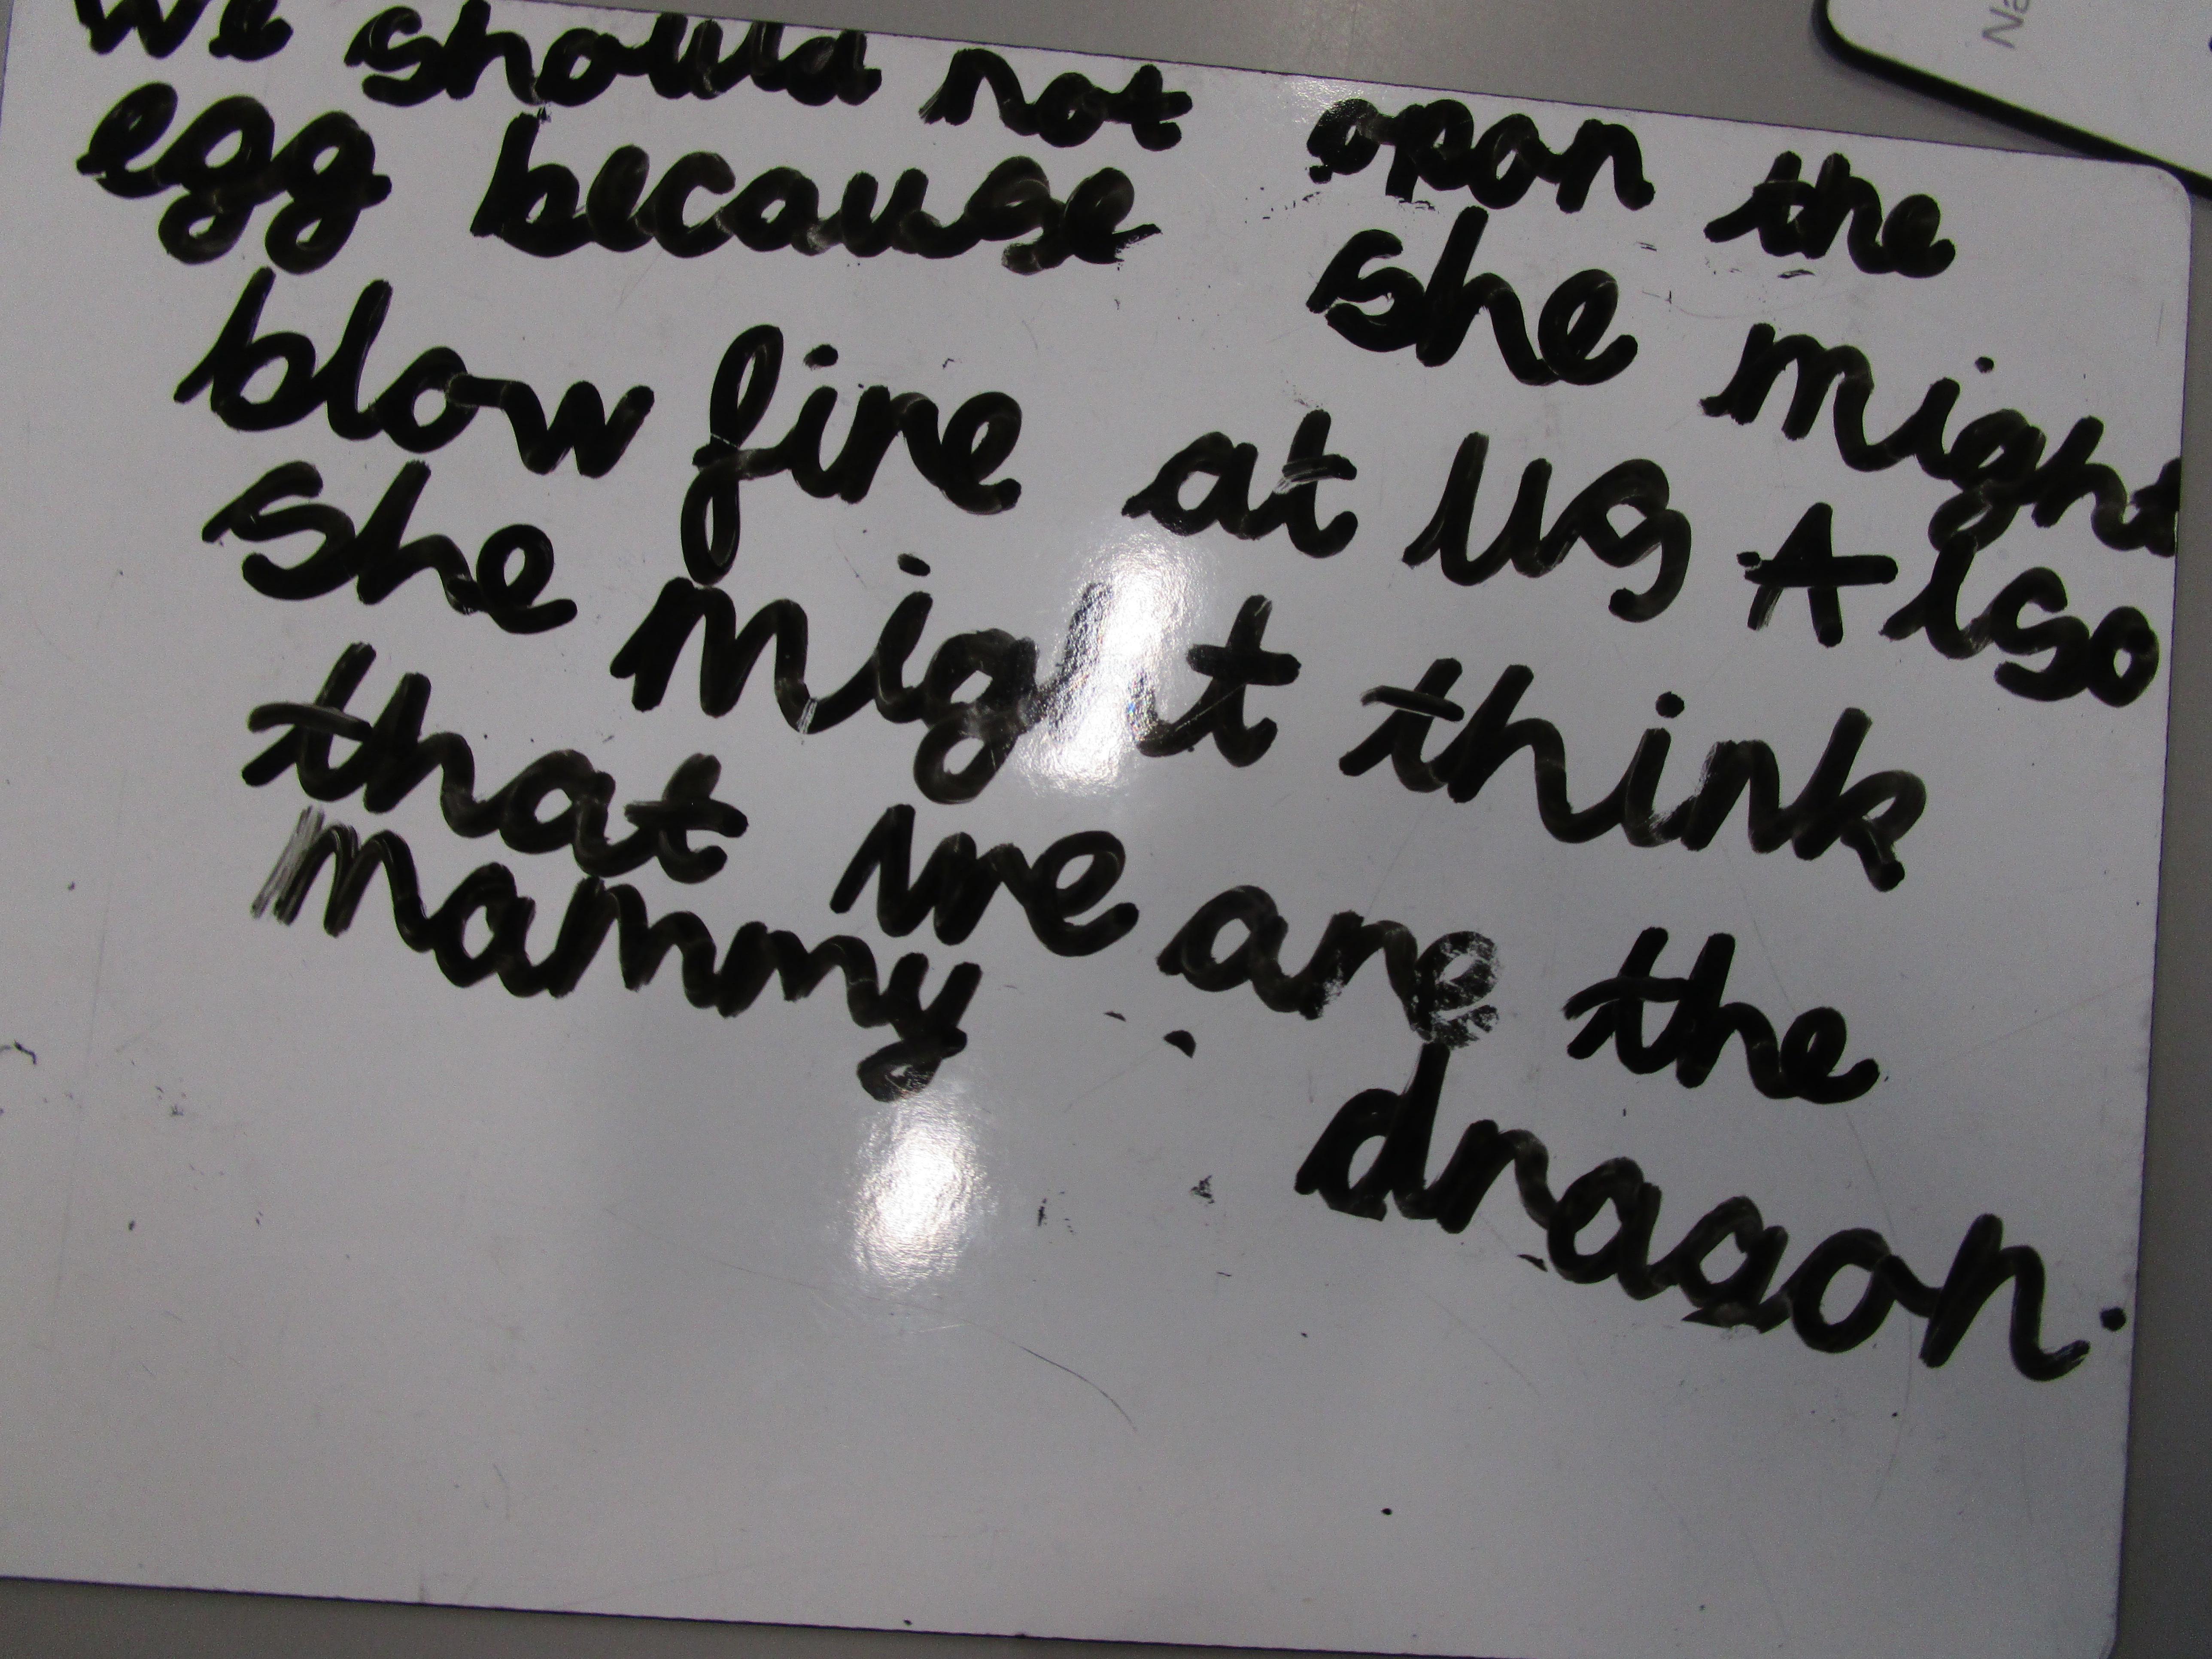 we should not opon the
egg because she might
blow fire at us Also
she might think
that we are the
mammy dragon.
Na